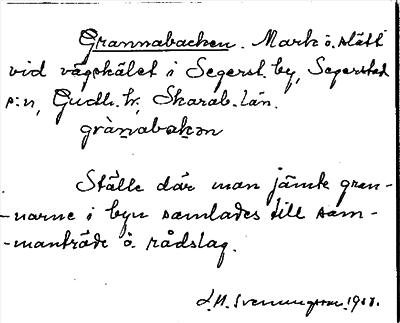 Grannabacken. Mark o. slätt
vid vägskälet i Segerst. by, Segerstad
s:n, Gudh. hr, Skarab. län.
grànabakən
Ställe där man jämte gran-
-narne i byn samlades till sam-
-manträde o. rådslag.
1908.